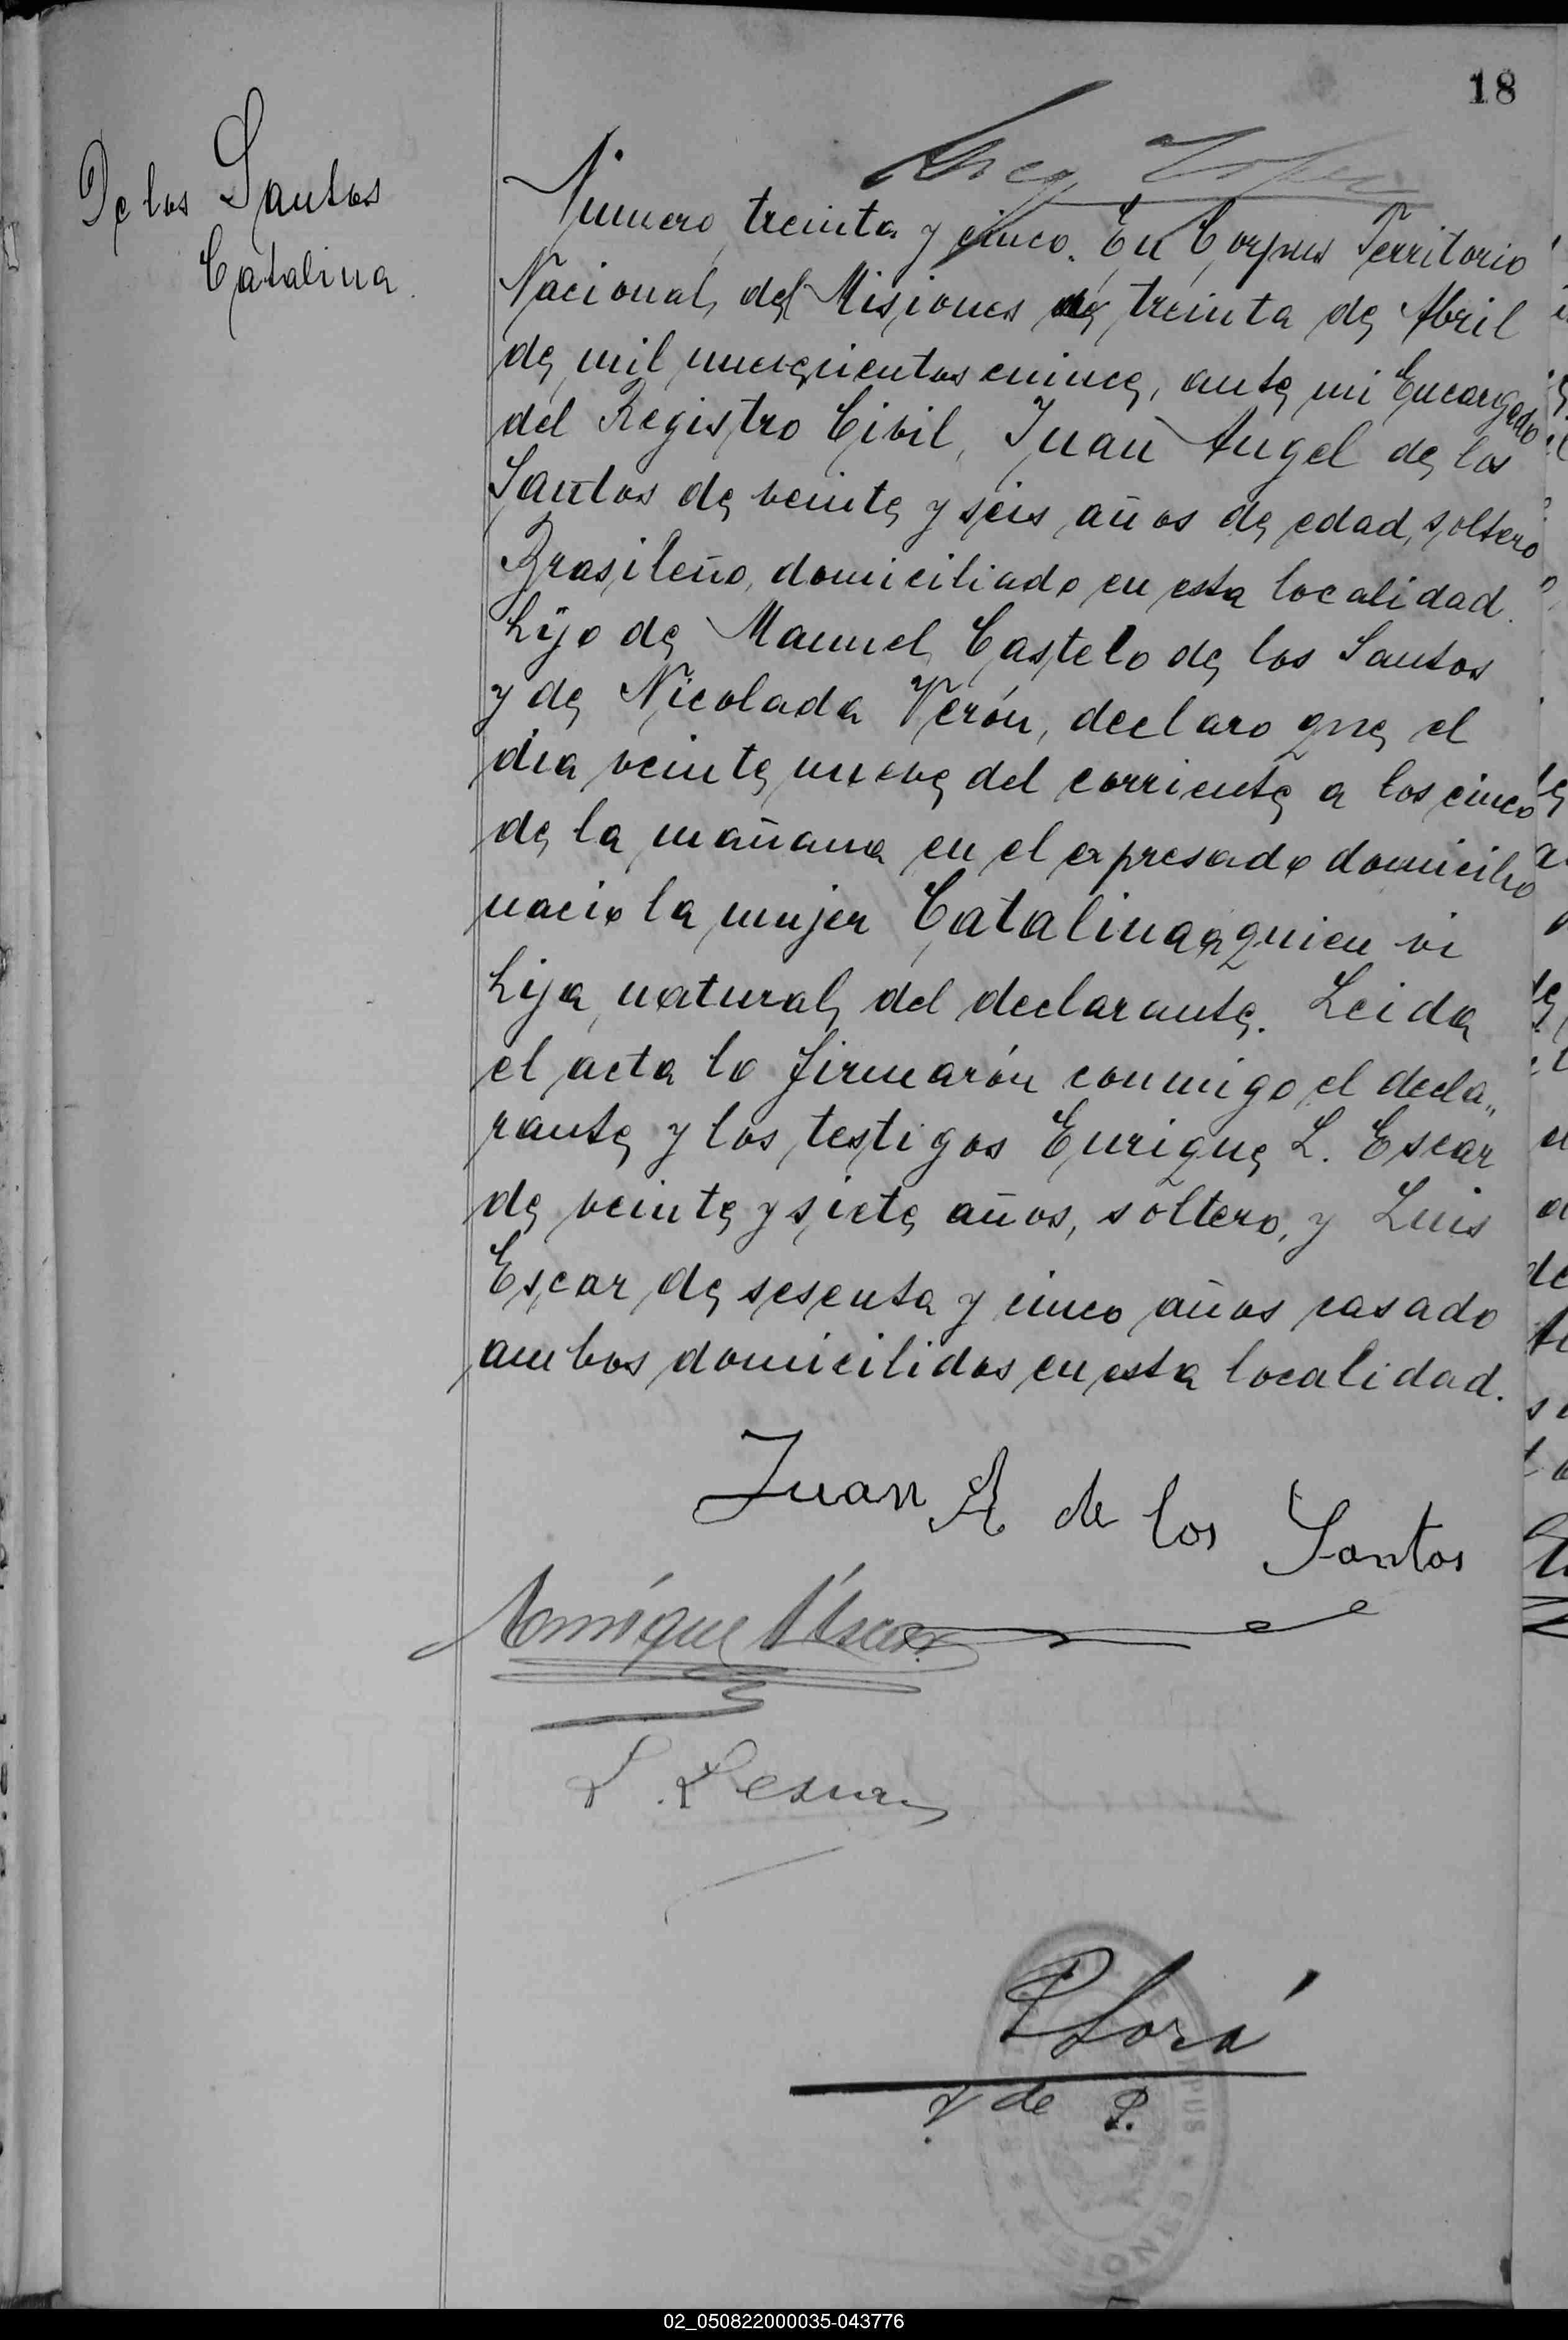 18
De los Santos
Catalina
Número treinta y cinco. En Corpus Territorio
Nacional del Misiones a treinta de Abril
de mil nuevecientos quince, ante mi Encargado
del Registro Civil, Juan Angel de los
Santos de veinte y seis años de edad, soltero
Brasileño, domiciliado en esta localidad.
hijo de Manuel Castelo de los Santos
y de Nicolada Verón, declaro que el
dia veinte nueve del corriente a los cinco
de la mañana en el expresado domicilio
nacio la mujer Catalina a quien vi
hija natural del declarante. Leida
el acta lo firmarón conmigo el decla„
rante y los testigos Enrique L. Escar
de veinte y siete años, soltero, y Luis
Escar de sesenta y cinco años casado
ambos domicilidos en esta localidad.
Juan A de los Santos
Enrique Escar
L.
J de P.
02_050822000035-043776